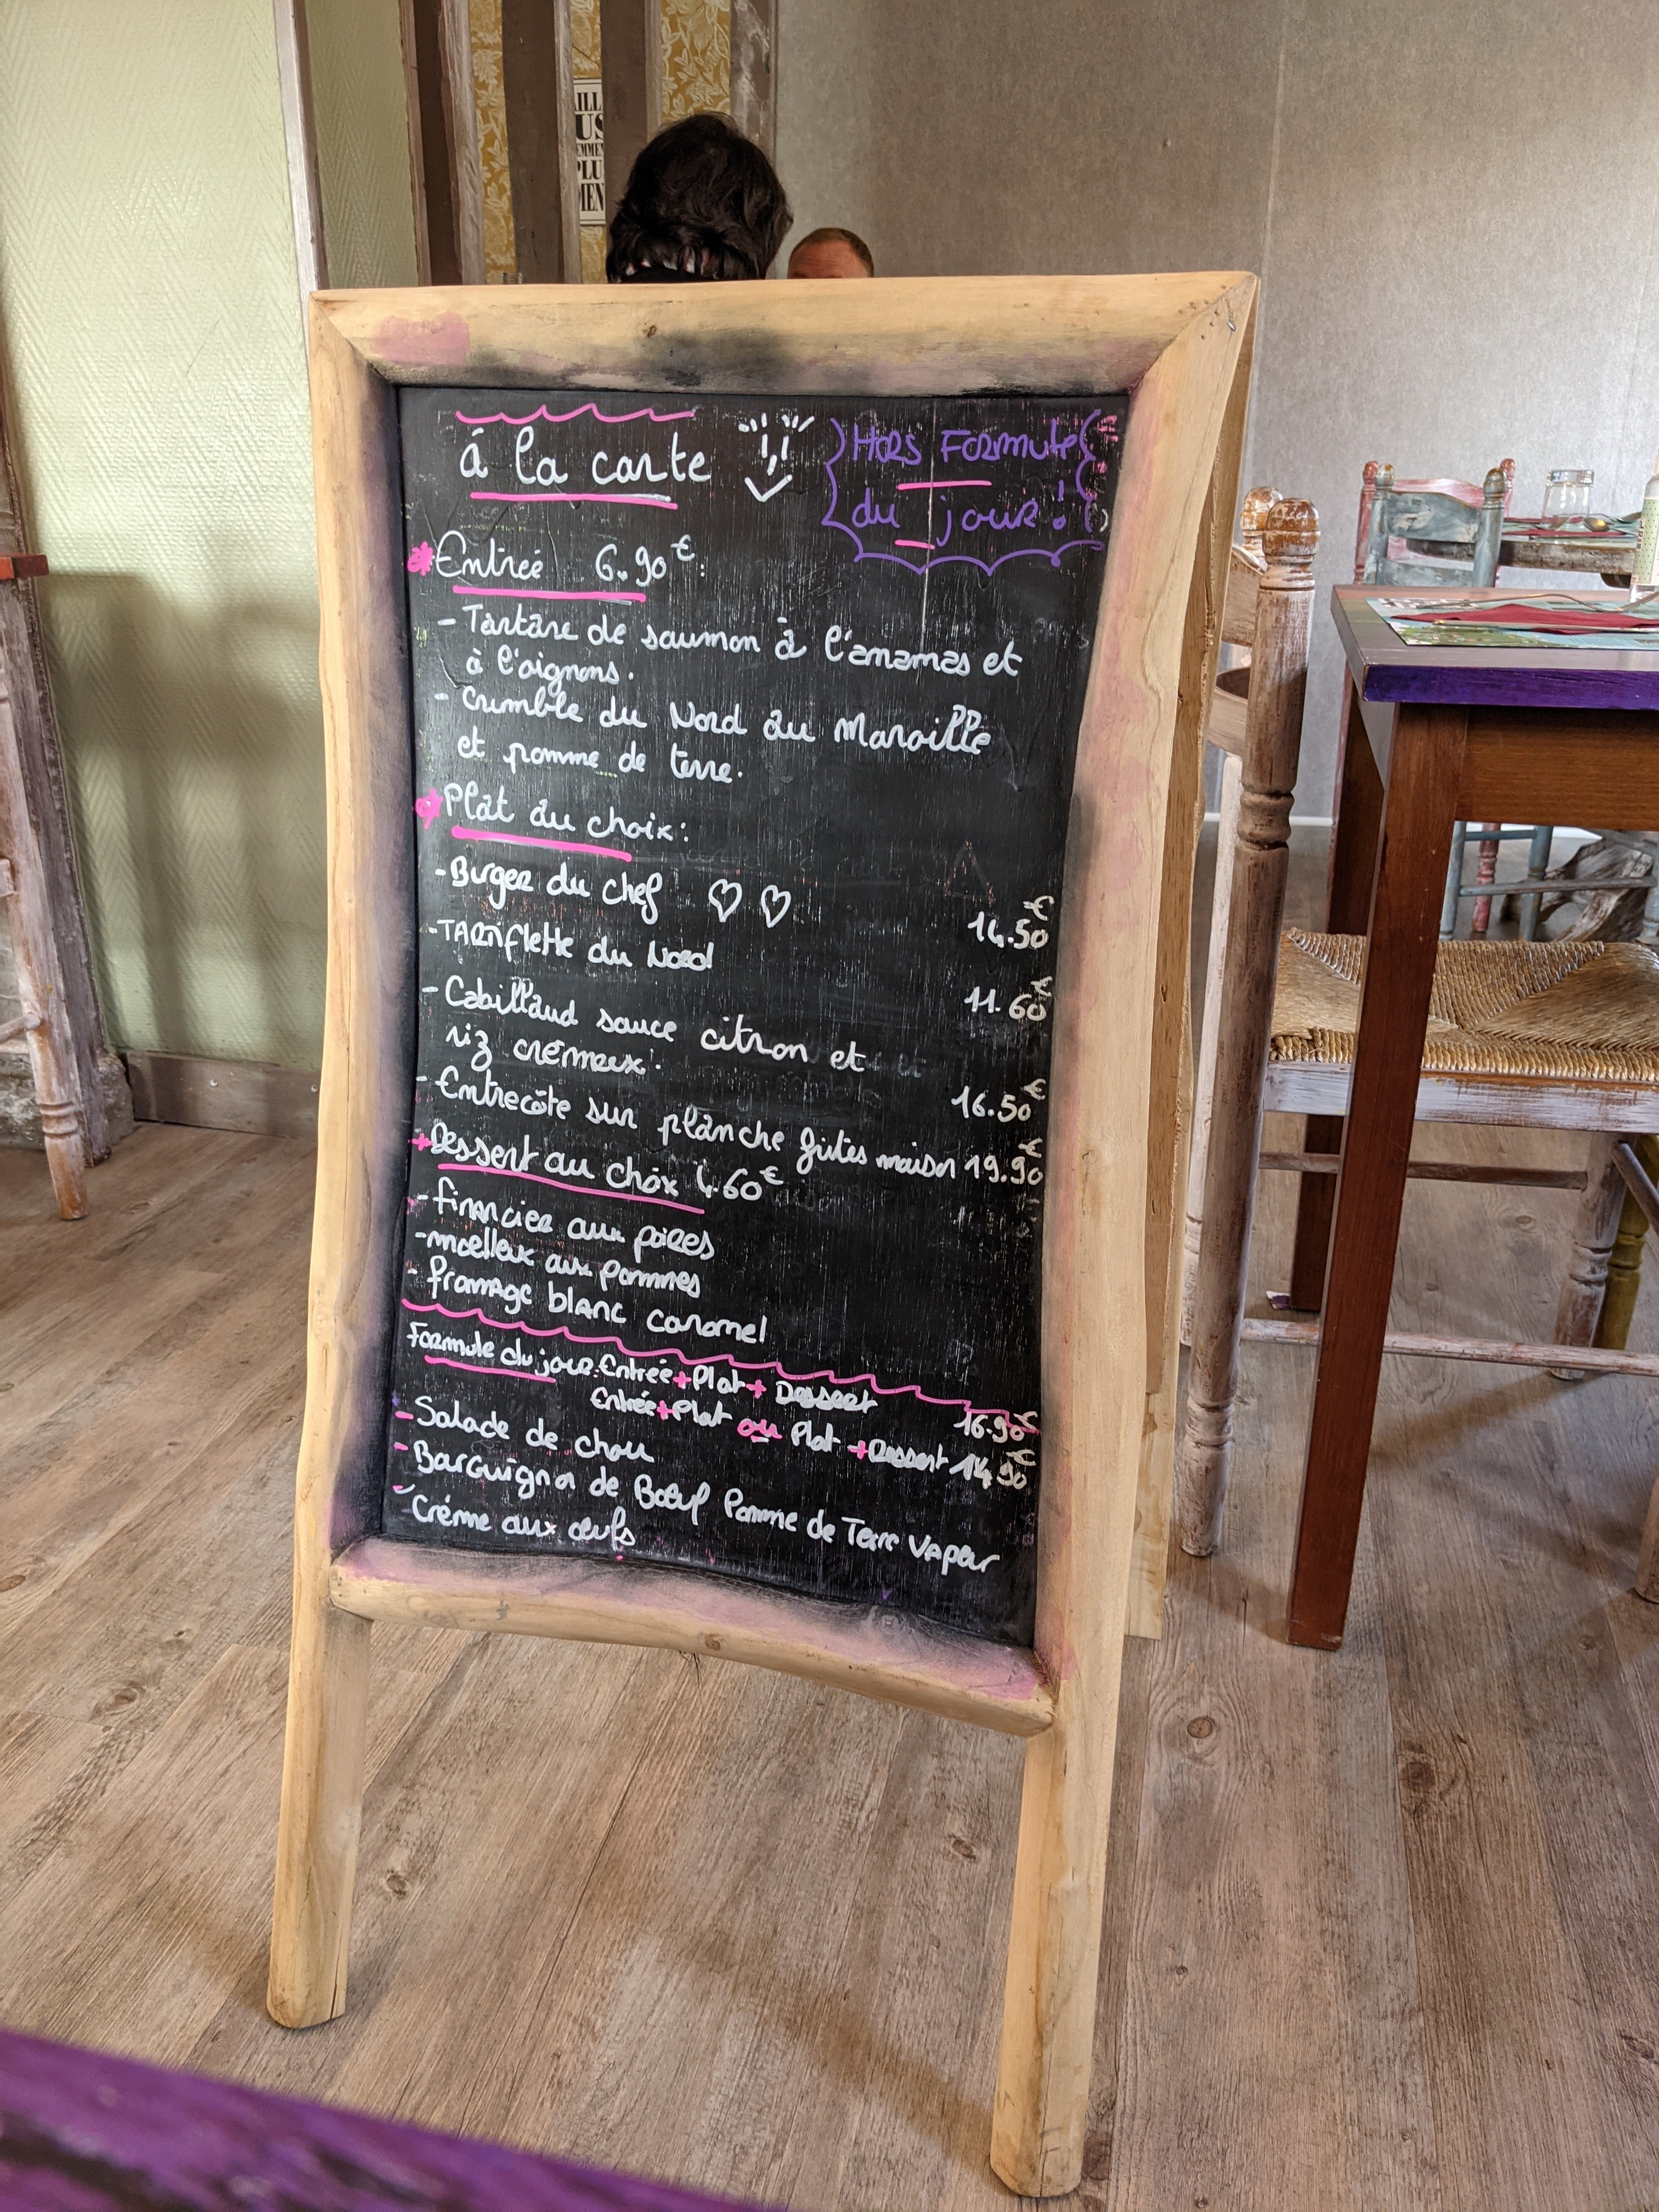 AILL
US
EMMEN
PLU
MEN
à la carte
Hors Formule
du jour!
Entrée 6.90€:
- Tartare de saumon à l'ananas et
à l'oignons.
- Crumble du Nord au Maroille
et pomme de terre.
Plat au choix:
- Burger du chef 14.50€
- TARTiflette du Nord 11.60€
- Cabillaud sauce citron et
riz crémeux. 16.50€
- Entrecôte sur planche frites maison 19.90€
+ Dessert au choix 4.60€
- financier aux poires
- moelleux aux pommes
- fromage blanc caramel
Formule du jour: Entrée + Plat + Dessert 16.90€
Entrée + Plat ou Plat + Dessert 14.90€
- Salade de chou
- Bourguignon de Bœuf Pomme de Terre Vapeur
- Crème aux œufs